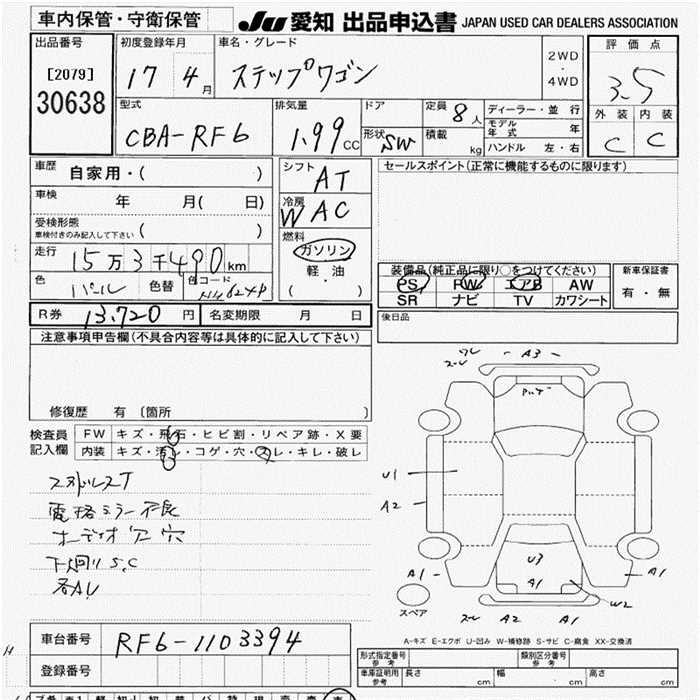 車内保管・守衛保管
JU 愛知 出品申込書 JAPAN USED CAR DEALERS ASSOCIATION
出品番号
[2079]
30638
初度登録年月
17 4月
車名・グレード
ステップワゴン
2WD
・
4WD
評価点
3.5
外装 内装
C C
型式
CBA-RF6
排気量
1.99 CC
ドア
形状 SW
定員 8人
積載 kg
ディーラー・並行
モデル年式 年
ハンドル 左・右
車歴
自家用・( )
車検 年 月( 日)
受検形態
車検付きのみ記入して下さい ( )
走行 15万3千490km
色 パール 色替 色コード
シフト AT
冷房 WAC
燃料
ガソリン
軽油
( ・ )
セールスポイント(正常に機能するものに限ります)
装備品(純正品に限り○をつけてください)
PS PW エアB AW
SR ナビ TV カワシート
新車保証書
有・無
R券 13,720円 名変期限 月 日
後日品
注意事項申告欄(不具合内容等は具体的に記入して下さい)
修復歴 有 〔箇所 〕
検査員
記入欄
FW キズ・飛石・ヒビ割・リペア跡・X要
内装 キズ・汚レ・コゲ・穴・スレ・キレ・破レ
スタットレスT
電格ミラー不良
オーディオ 穴
下回りS,C
各AU
ワレ
スレ
A3
U1
A2
U3
A1
A1
A1
W2
スレ A2 A2
スペア
A-キズ E-エクボ U-凹み W-補修跡 S-サビ C-腐食 XX-交換済
車台番号 RF6-1103394
登録番号
形式指定番号 参考
類別区分番号 参考
車庫証明用 参考 長さ cm 幅 cm 高さ cm